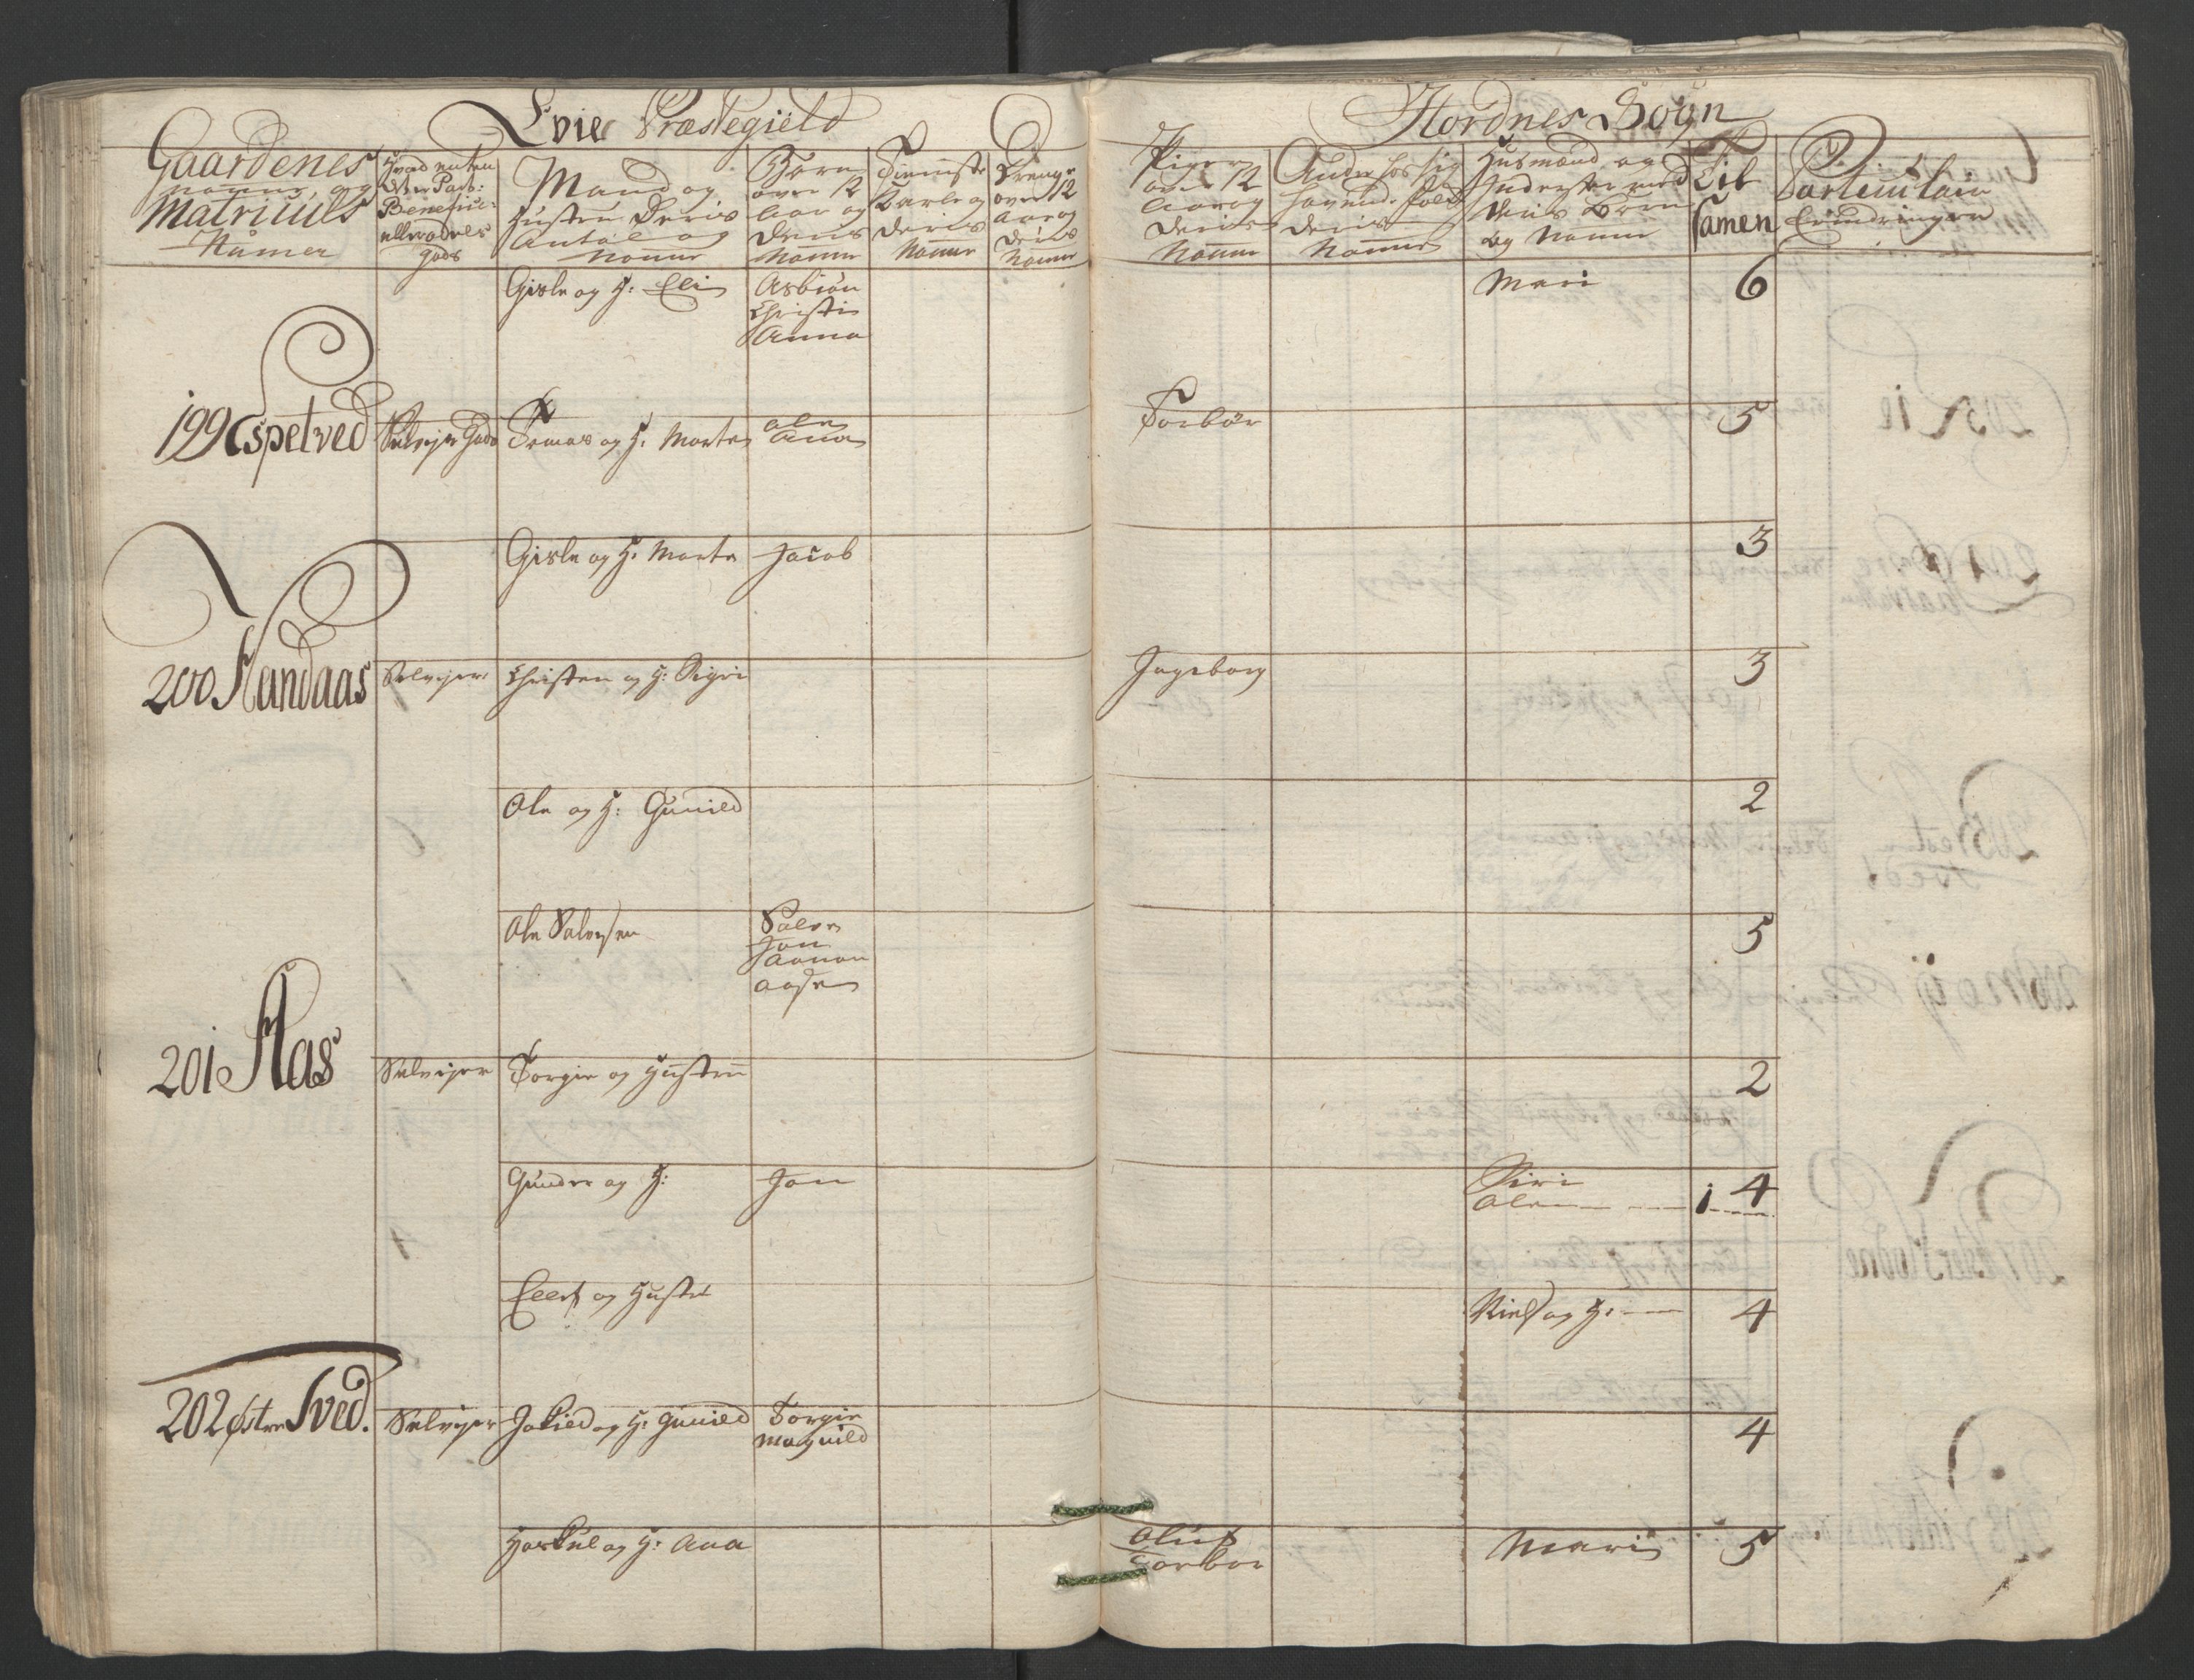 Evie Præstegield
Hordnes Sogn
Gaardenes
Matriculs
Numer
Hvad enten
det er Part:
Benefice:
eller andres
gods
Mand og
Hustru Deris
Antal og
Nafne
Børn
over 12
Aar og
Deris
Nafne
Tienniste
Karle og
Deris
Nafne
Drenge
over 12
Aar og
Deris
Nafne
Piger
over 12
Aar og
Deris
Nafne
Andre hos sig
havende folk
Deris
Nafne
Husmænd og
Inderster med
Deris Børn
og Nafne
Til
Samen
Particulair
Erindringer
Gisle og H: Eli
Asbiøn
Christi
Anna
Mari
6
199 Espetved
Selvejer Gods
Tomas og H: Marte
Ole
Ana
Torbør
5
Gisle og H: Marte
Jacob
3
200 Randaas
Selvejer
Christen og H: Sigri
Ingeborg
3
Ole og H: Gunild
2
Ole Salvesen
Salve
Jon
Aanon
Aase
5
201 Aas
Selvejer
Torgie og Hustru
2
Gunder og H:
Jon
Siri
Ole
1
4
Eilert og Hustru
Niels og H:
4
202 Østre Tved.
Selvejer
Jokield og H: Gunild
Torgie
Magnild
4
Hoskul og H: Ana
Oluf
Torbor
Mari
5